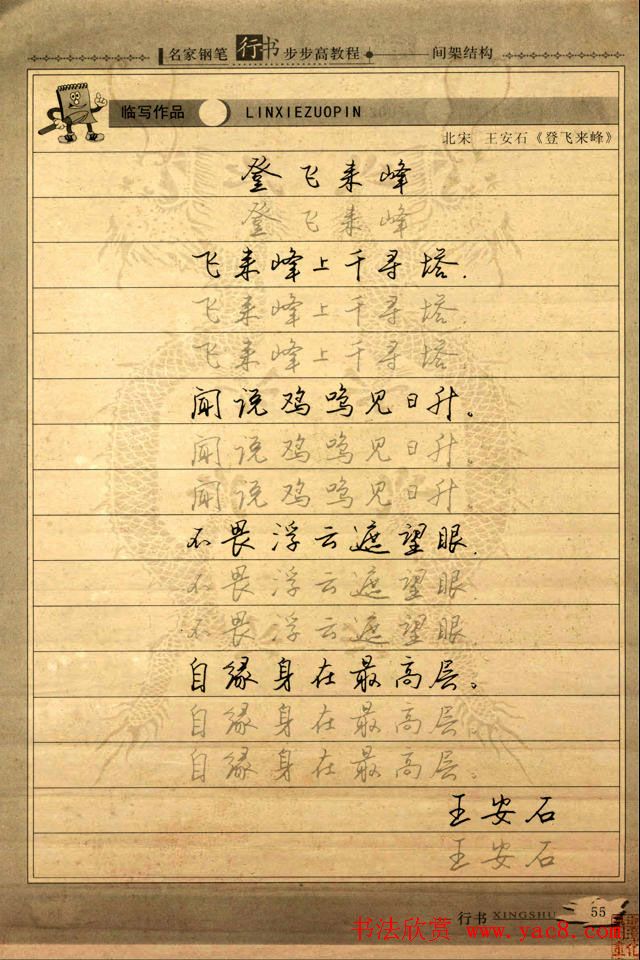 名家钢笔行书步步高教程 间架结构
临写作品 LINXIEZUOPIN
北宋 王安石《登飞来峰》
登飞来峰
登飞来峰
飞来峰上千寻塔,
飞来峰上千寻塔,
飞来峰上千寻塔,
闻说鸡鸣见日升。
闻说鸡鸣见日升。
闻说鸡鸣见日升。
不畏浮云遮望眼,
不畏浮云遮望眼,
不畏浮云遮望眼,
自缘身在最高层。
自缘身在最高层。
自缘身在最高层。
王安石
王安石
行书 XINGSHU 55
书法欣赏 www.yac8.com